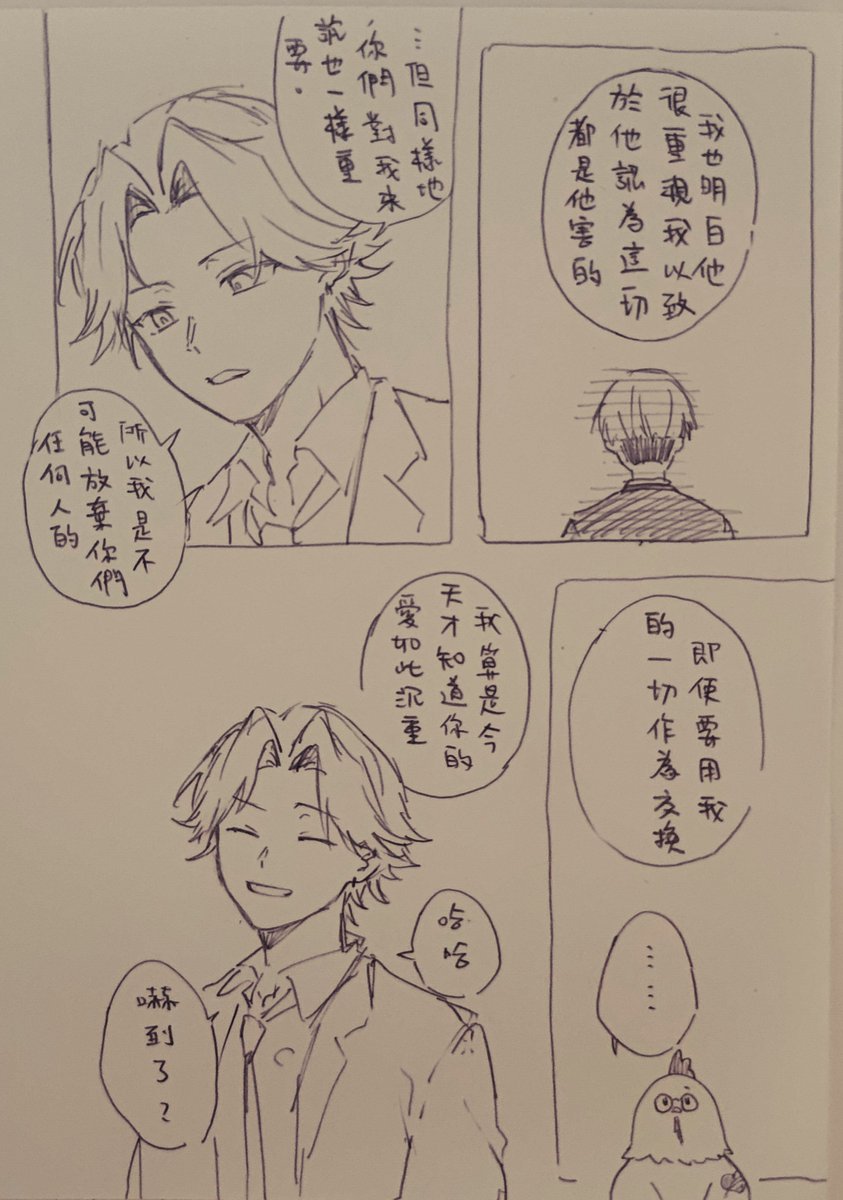 我也明白他
很重視我以致
於他認為這一切
都是他害的
…但同樣地
,你們對我來
說也一樣重
要。
所以我是不
可能放棄你們
任何人的
即便要用我
的一切作為交換
……
我算是今
天才知道你的
愛如此沉重
哈哈
嚇到了?